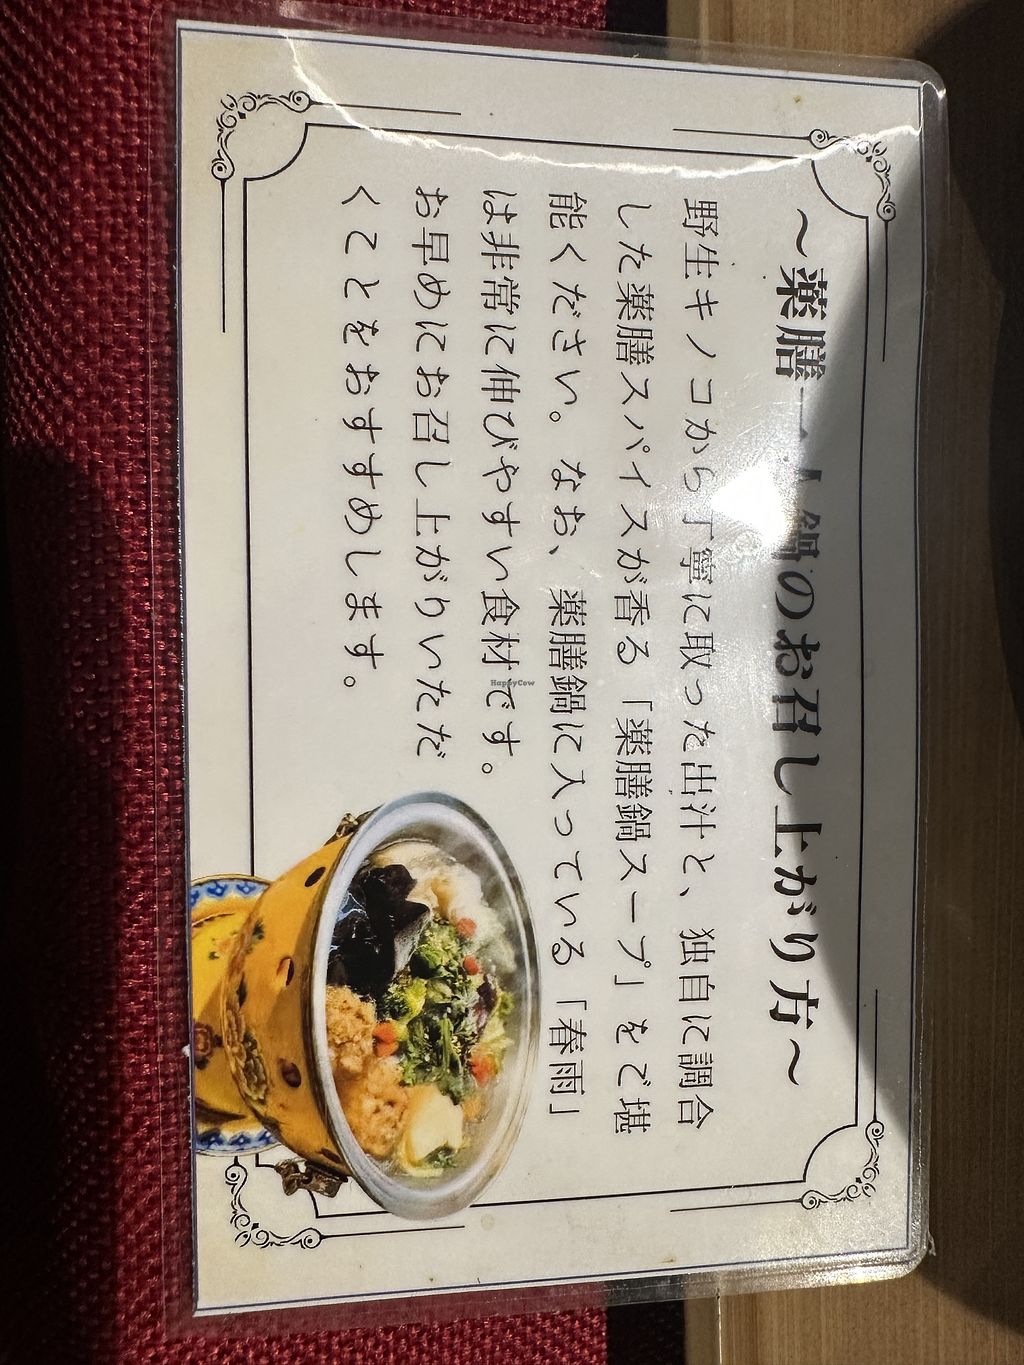 ～薬膳一人鍋のお召し上がり方～
野生キノコから丁寧に取った出汁と、独自に調合
した薬膳スパイスが香る「薬膳鍋スープ」をご堪
能ください。なお、薬膳鍋に入っている「春雨」
は非常に伸びやすい食材です。
お早めにお召し上がりいただ
くことをおすすめします。
HappyCow